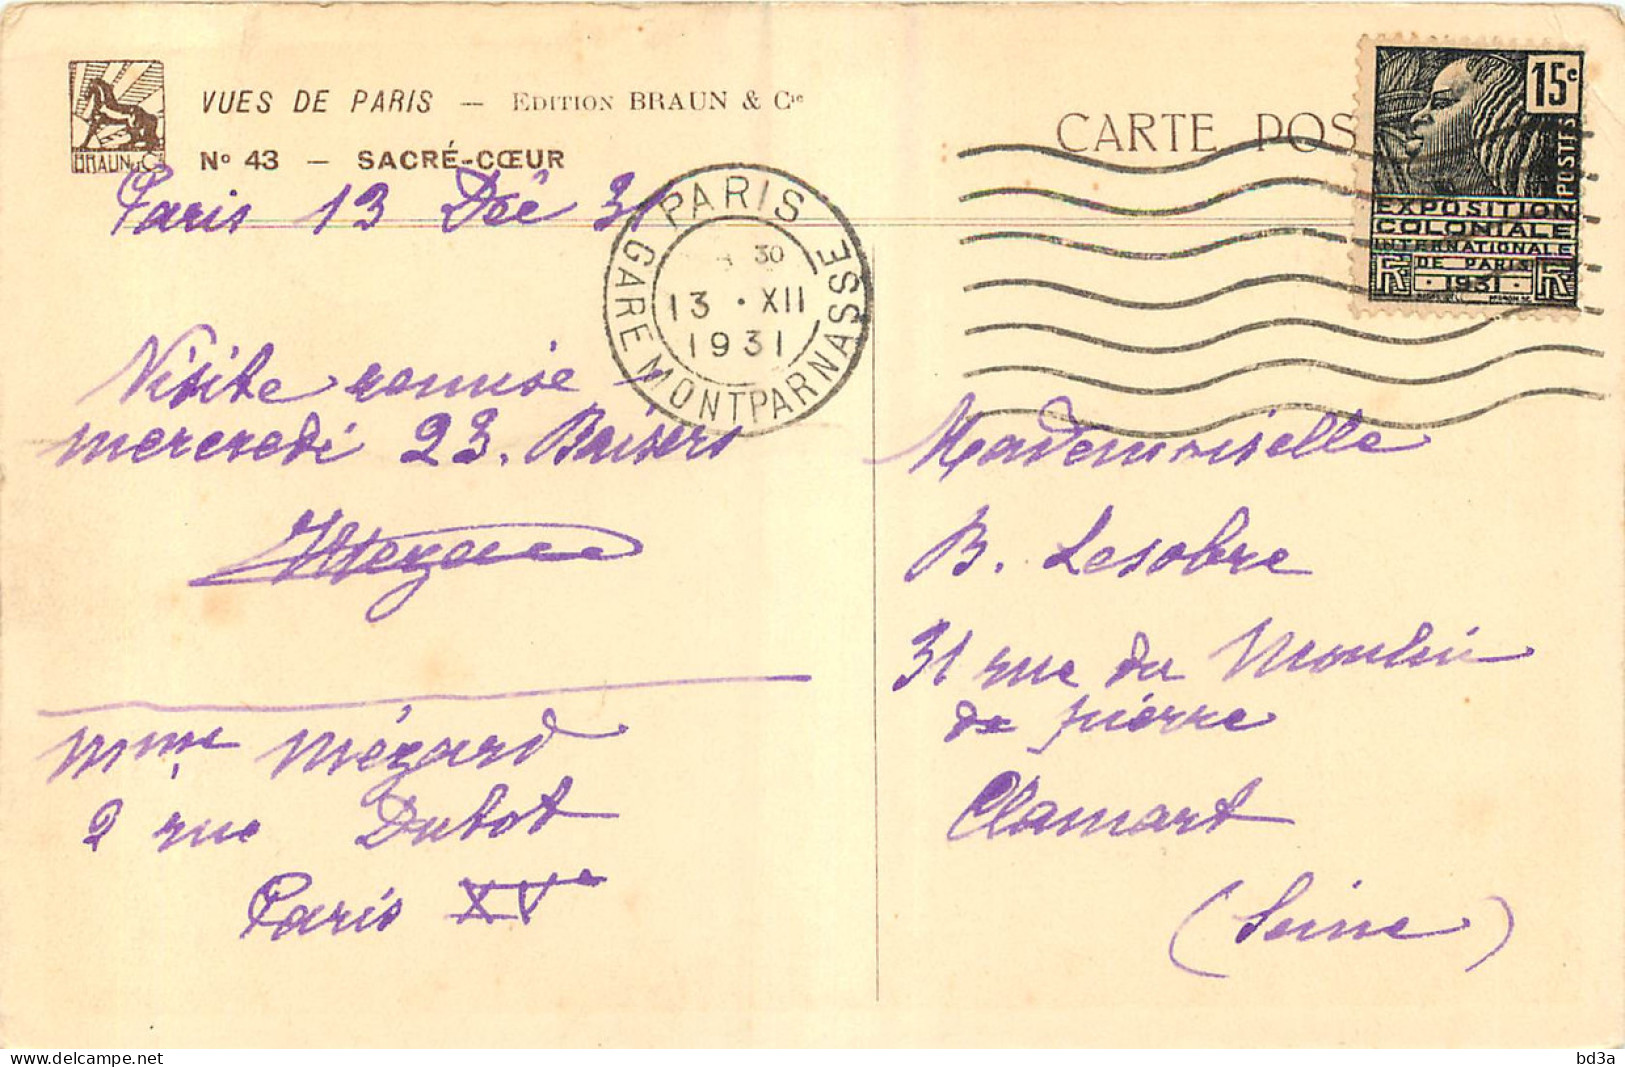 VUES DE PARIS — EDITION BRAUN & Cie
BRAUN & Cie
No 43 — SACRÉ-CŒUR
CARTE POS
15c
POSTES
EXPOSITION
COLONIALE
INTERNATIONALE
DE PARIS
RF · 1931 · RF
PARIS
30
13 · XII
1931
GARE MONTPARNASSE
Paris 13 Déc 31
Visite remise
mercredi 23. Baisers
Mme Mézard
2 rue Dutot
Paris XVe
Mademoiselle
B. Lesobre
31 rue du Moulin
de pierre
Clamart
(Seine)
delcampe.net
bd3a